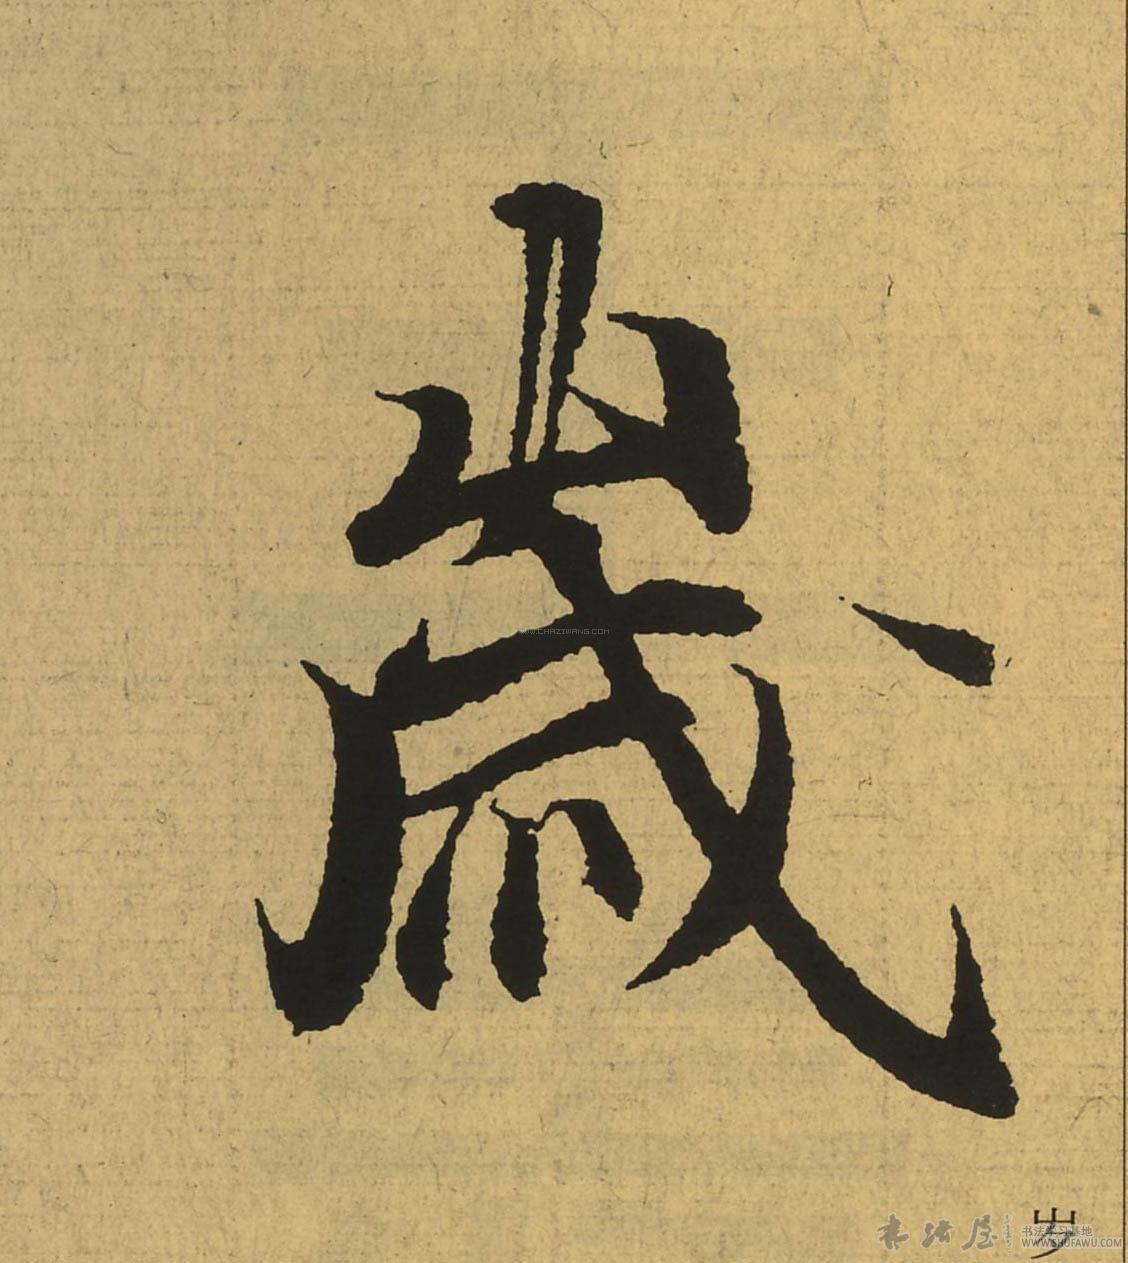 歲
WWW.CHAZIWANG.COM
岁
书法屋
书法学习基地
WWW.SHUFAWU.COM